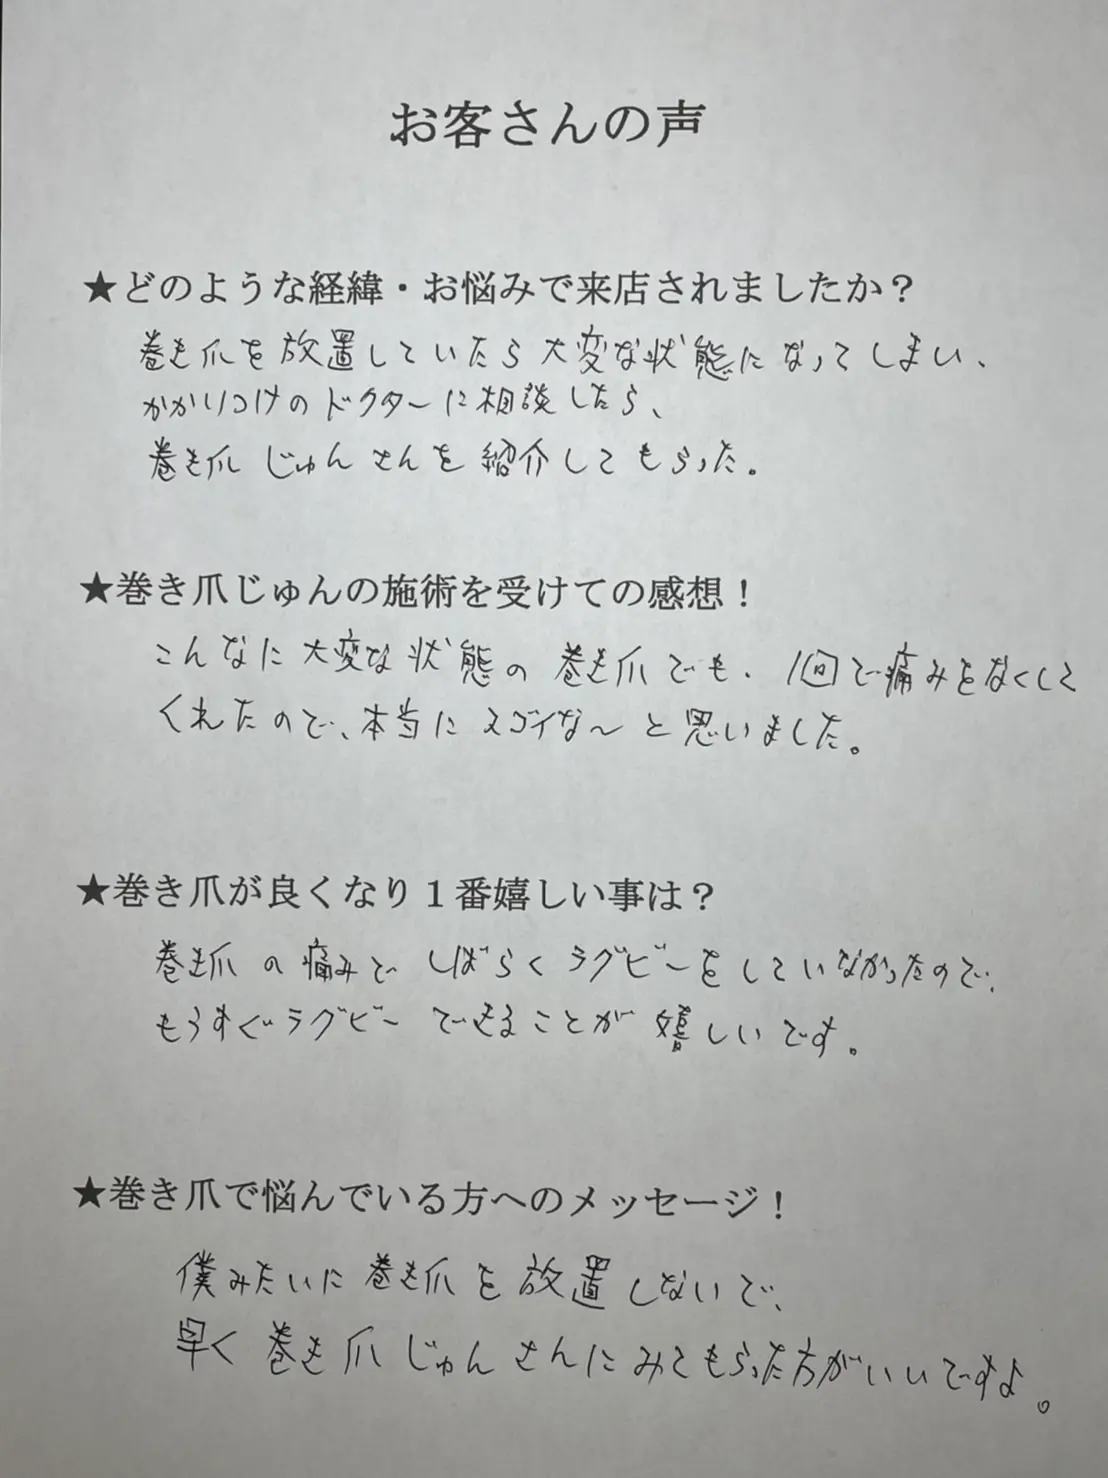 お客さんの声
★どのような経緯・お悩みで来店されましたか？
巻き爪を放置していたら大変な状態になってしまい、
かかりつけのドクターに相談したら、
巻き爪じゅんさんを紹介してもらった。
★巻き爪じゅんの施術を受けての感想！
こんなに大変な状態の巻き爪でも、1回で痛みをなくして
くれたので、本当にスゴイな～と思いました。
★巻き爪が良くなり１番嬉しい事は？
巻き爪の痛みでしばらくラグビーをしていなかったので、
もうすぐラグビーできることが嬉しいです。
★巻き爪で悩んでいる方へのメッセージ！
僕みたいに巻き爪を放置しないで、
早く巻き爪じゅんさんにみてもらった方がいいですよ。